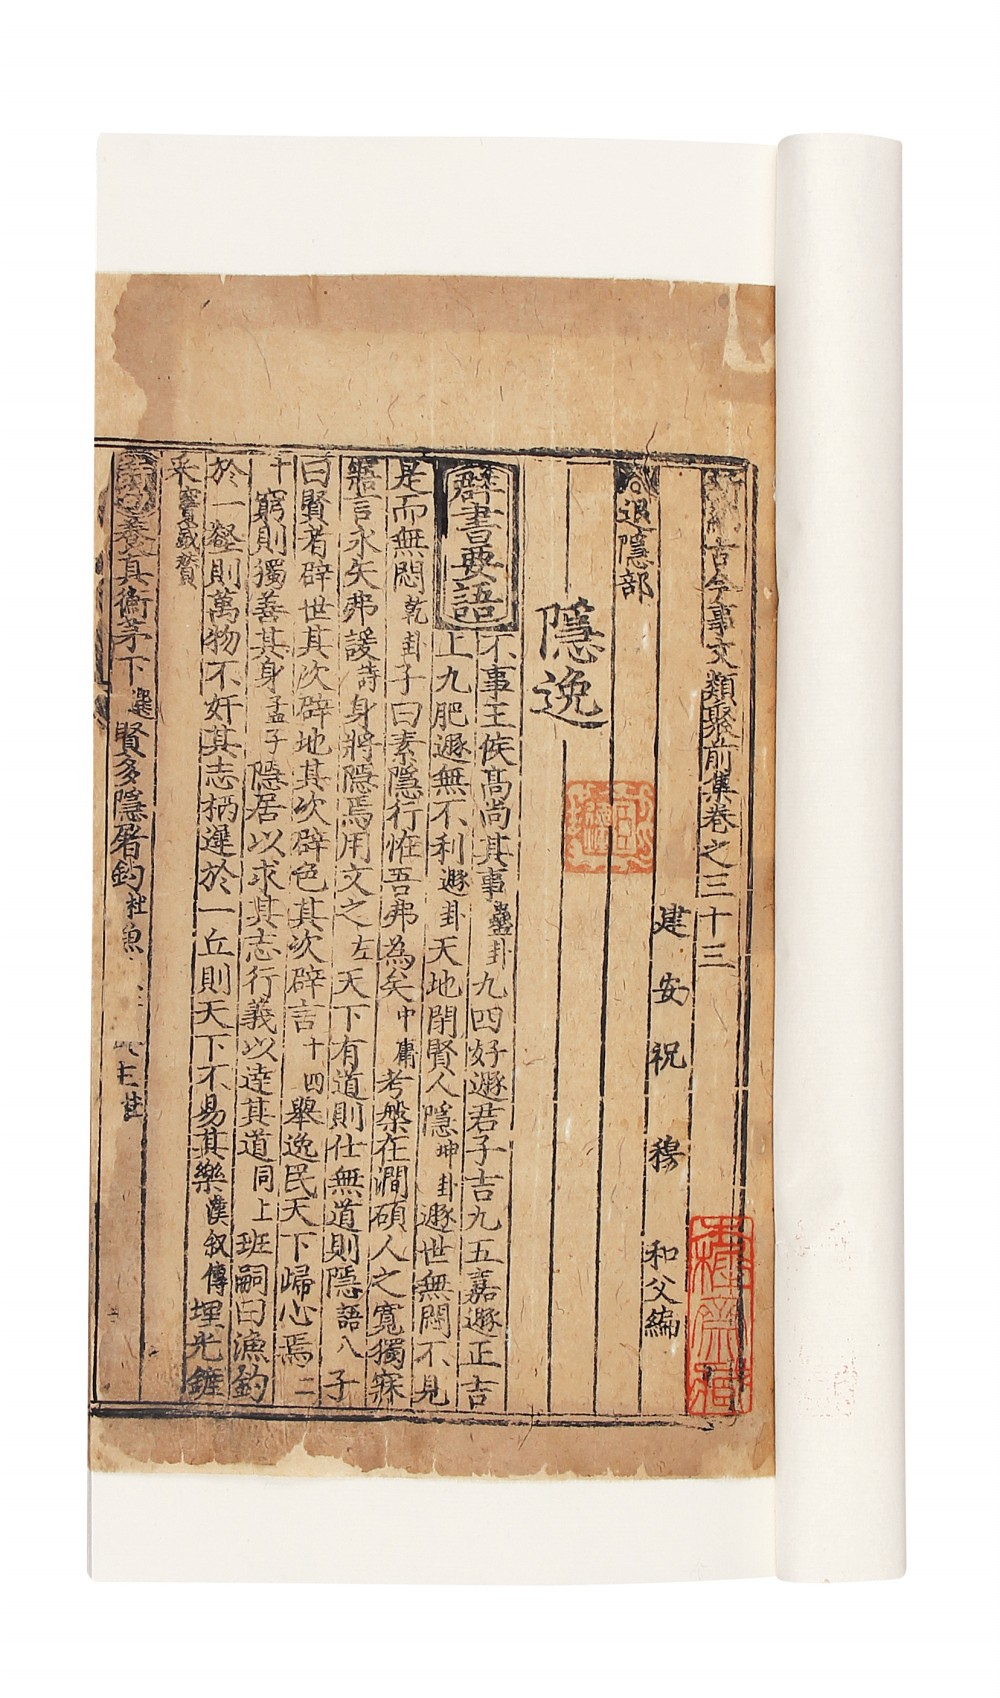 新編古今事文類聚前集卷之三十三
建安祝穆和父編
遯隱部
隱逸
群書要語
不事王侯高尚其事蠱卦九四好遯君子吉九五嘉遯正吉
上九肥遯無不利遯卦天地閉賢人隱坤卦遯世無悶不見
是而無悶乾卦子曰素隱行怪吾弗為矣中庸考槃在澗碩人之寬獨寐
寤言永矢弗諼詩身將隱焉用文之左天下有道則仕無道則隱語八子
曰賢者辟世其次辟地其次辟色其次辟言十四舉逸民天下歸心焉二
十窮則獨善其身孟子隱居以求其志行義以達其道同上班嗣曰漁釣
於一壑則萬物不奸其志栖遲於一丘則天下不易其樂漢叙傳埋光鏟
采
養真衡茅下選賢多隱屠釣杜漁